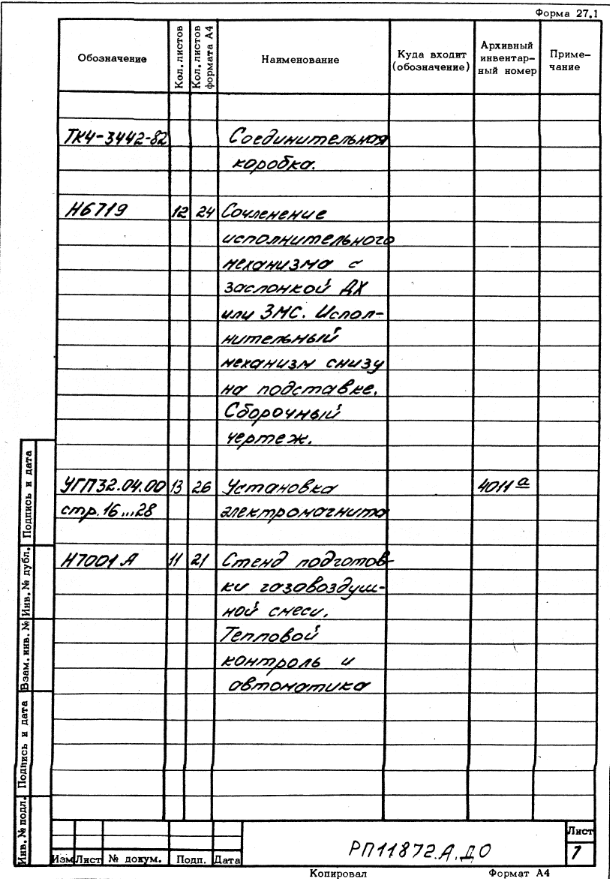 Форма 27.1
Обозначение
Кол. листов
Кол. листов формата А4
Наименование
Куда входит (обозначение)
Архивный инвентар-
ный номер
Приме-
чание
ТК4-3442-82 Соединительная
коробка.
Н6719 12 24 Сочленение
исполнительного
механизма с
заслонкой ДХ
или ЗМС. Испол-
нительный
механизм снизу
на подставке.
Сборочный
чертеж.
УГП32.04.00 13 26 Установка 4011а
стр. 16...28 электромагнита
Н7001А 11 21 Стенд подготов-
ки газовоздуш-
ной смеси.
Тепловой
контроль и
автоматика
Инв. № подл. Подпись и дата Взам. инв. № Инв. № дубл. Подпись и дата
РП11872.А.ДО
Лист
1
Изм Лист № докум. Подп. Дата
Копировал Формат А4